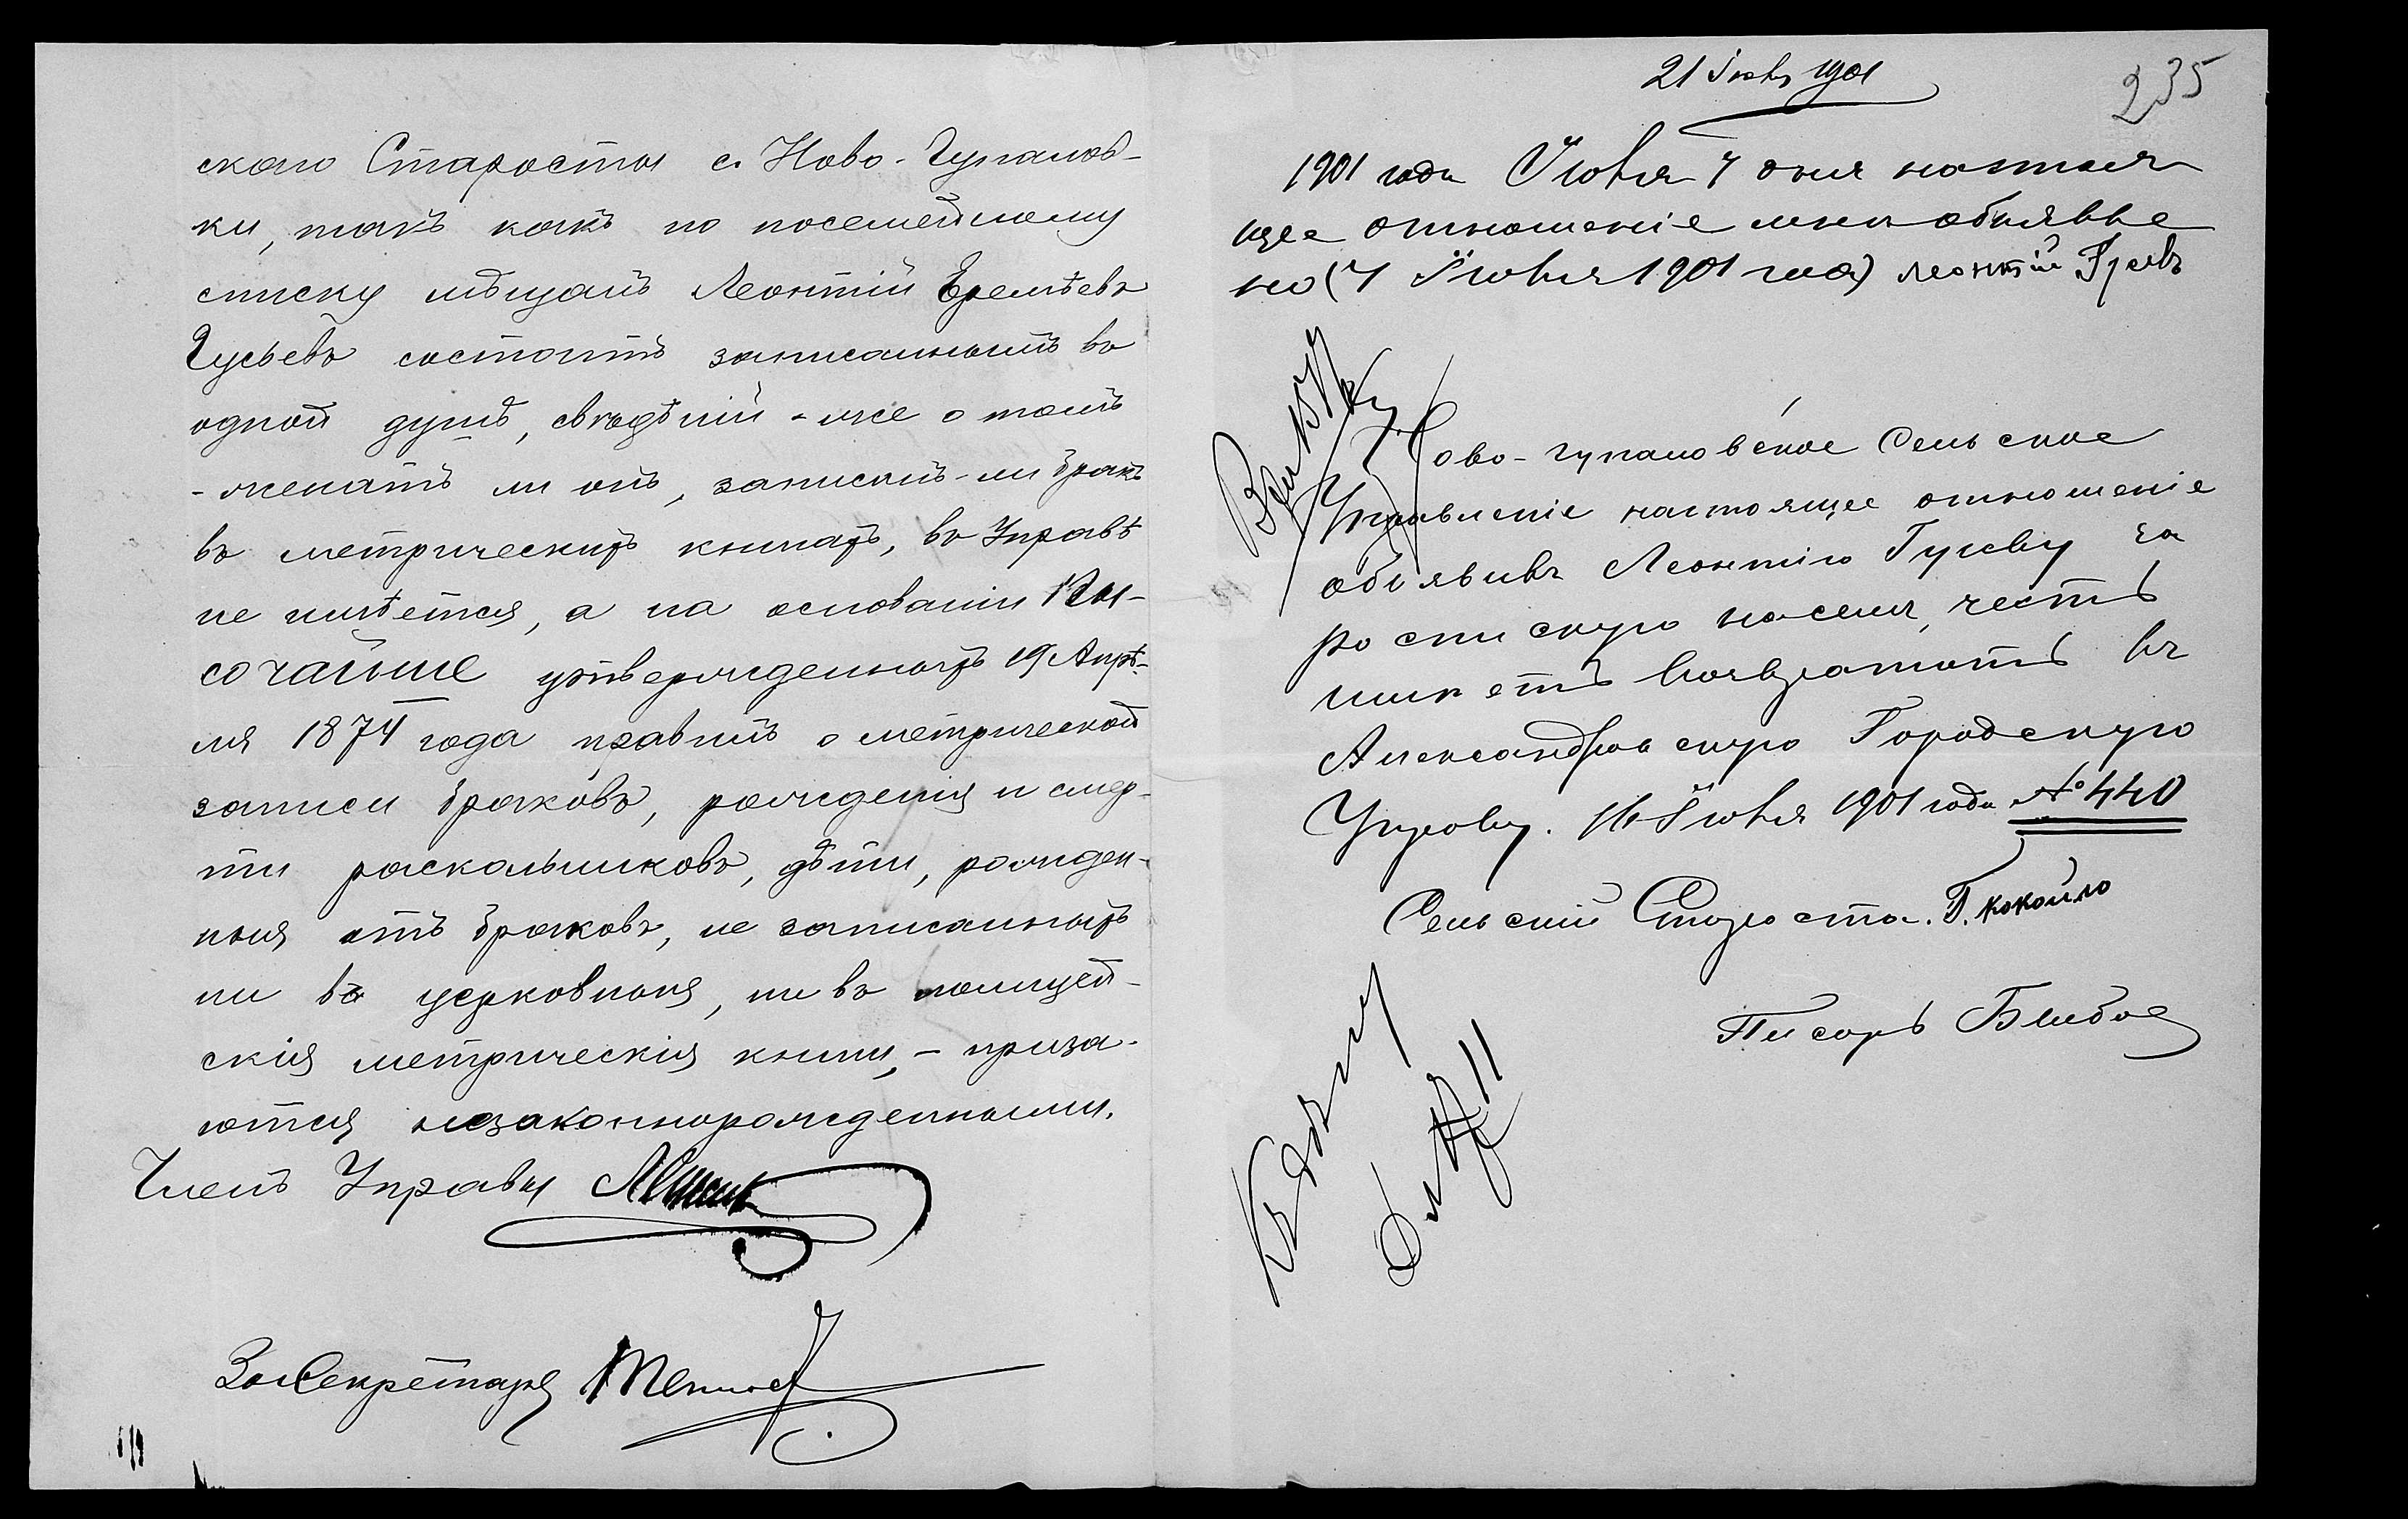 скаго Старосты с. Ново-Гупалов-
ки, такъ какъ по посемейному
списку мѣщанъ Леонтій Еремѣевъ
Гусьевъ состоитъ записаннымъ въ
одной душѣ, свѣдѣній-же о томъ
-женатъ ли онъ, записанъ-ли бракъ
въ метрическихъ книгахъ, въ Управѣ
не имѣется, а на основаніи Вы-
сочайше утвержденныхъ 19 Апрѣ-
ля 1874 года правилъ о метрической
записи браковъ, рожденія и смер-
ти раскольниковъ, дѣти, рожден-
ныя отъ браковъ, не записанныхъ
ни въ церковныя, ни въ полицей-
скія метрическія книги, - призна-
ются незаконнорожденными.
Членъ Управы
За Секретаря
21 Іюня 1901
235
1901 года Іюня 7 дня настоя
щее отношеніе мнѣ обьявле
но (7 Іюня 1901 года) Леонтій Гусевъ
Ново-гупаловское Сельское
Управленіе настоящее отношеніе
объявивъ Леонтію Гусеву за
роспискую на семъ, честь
имѣетъ возвратить въ
Александровскую Городскую
Управу. 16 Іюня 1901 года № 440
Сельскій Староста. Г. Кокойло
Писарь
Къ дѣлу